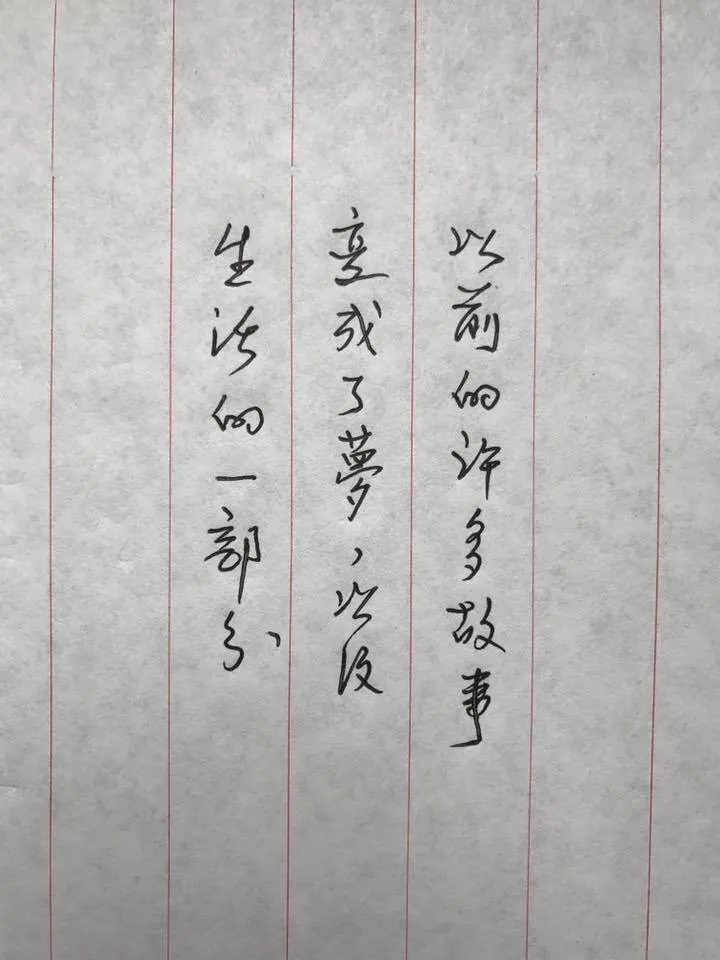 以前的许多故事
变成了夢，以后
生活的一部分